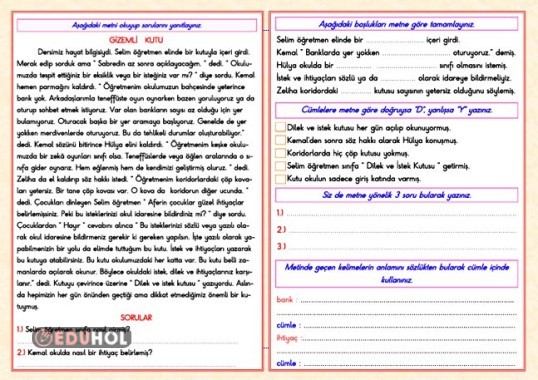 Aşağıdaki metni okuyup sorularını yanıtlayınız.
GİZEMLİ KUTU
Dersimiz hayat bilgisiydi. Selim öğretmen elinde bir kutuyla içeri girdi.
Merak edip sorduk ama " Sabredin az sonra açıklayacağım. " dedi. " Okulu-
muzda tespit ettiğiniz bir eksiklik veya bir isteğiniz var mı? " diye sordu. Kemal
hemen parmağını kaldırdı. " Öğretmenim okulumuzun bahçesinde yeterince
bank yok. Arkadaşlarımla teneffüste oyun oynarken bazen yoruluyoruz ya da
oturup sohbet etmek istiyoruz. Var olan bankların sayısı az olduğu için yer
bulamıyoruz. Oturacak başka bir yer aramaya başlıyoruz. Genelde de yer
yokken merdivenlerde oturuyoruz. Bu da tehlikeli durumlar oluşturabiliyor."
dedi. Kemal sözünü bitirince Hülya elini kaldırdı. " Öğretmenim keşke okulu-
muzda bir zekâ oyunları sınıfı olsa. Teneffüslerde veya öğlen aralarında o sı-
nıfa gider oynarız. Hem eğlenmiş hem de kendimizi geliştirmiş oluruz. " dedi.
Zeliha da el kaldırıp söz hakkı istedi. " Öğretmenim koridorlardaki çöp kova-
ları yetersiz. Bir tane çöp kovası var. O kova da koridorun diğer ucunda. "
dedi. Çocukları dinleyen Selim öğretmen " Aferin çocuklar güzel ihtiyaçlar
belirlemişsiniz. Peki bu isteklerinizi okul idaresine bildirdiniz mi? " diye sordu.
Çocuklardan " Hayır " cevabını alınca " Bu isteklerinizi sözlü veya yazılı ola-
rak okul idaresine bildirmeniz gerekir ki gereken yapılsın. İşte yazılı olarak ya-
pabilmenizin bir yolu da elimde tuttuğum bu kutu. İstek ve ihtiyaçları yazarak
bu kutuya atabilirsiniz. Bu kutu okulumuzdaki her katta var. Bu kutu belli za-
manlarda açılarak okunur. Böylece okuldaki istek, dilek ve ihtiyaçlarınız karşı-
lanır." dedi. Kutuyu çevirince üzerine " Dilek ve istek kutusu " yazıyordu. Aslın-
da hepimizin her gün önünden geçtiği ama dikkat etmediğimiz önemli bir ku-
tuymuş.
SORULAR
1.) Selim öğretmen
EDUHOL
2.) Kemal okulda nasıl bir ihtiyaç belirlemiş?
Aşağıdaki boşlukları metne göre tamamlayınız.
Selim öğretmen elinde bir ........................ içeri girdi.
Kemal " Banklarda yer yokken ........................ oturuyoruz." demiş.
Hülya okulda bir ........................ sınıfı olmasını istemiş.
İstek ve ihtiyaçları sözlü ya da ............... olarak idareye bildirmeliyiz.
Zeliha koridordaki ............... kutusu sayısının yetersiz olduğunu söylemiş.
Cümlelere metne göre doğruysa "D", yanlışsa "Y" yazınız.
Dilek ve istek kutusu her gün açılıp okunuyormuş.
Kemal'den sonra söz hakkı alarak Hülya konuşmuş.
Koridorlarda hiç çöp kutusu yokmuş.
Selim öğretmen sınıfa " Dilek ve İstek Kutusu " getirmiş.
Kutu okulun sadece giriş katında varmış.
Siz de metne yönelik 3 soru bularak yazınız.
1.)
2.)
3.)
Metinde geçen kelimelerin anlamını sözlükten bularak cümle içinde
kullanınız.
bank :
cümle :
ihtiyaç :
cümle :